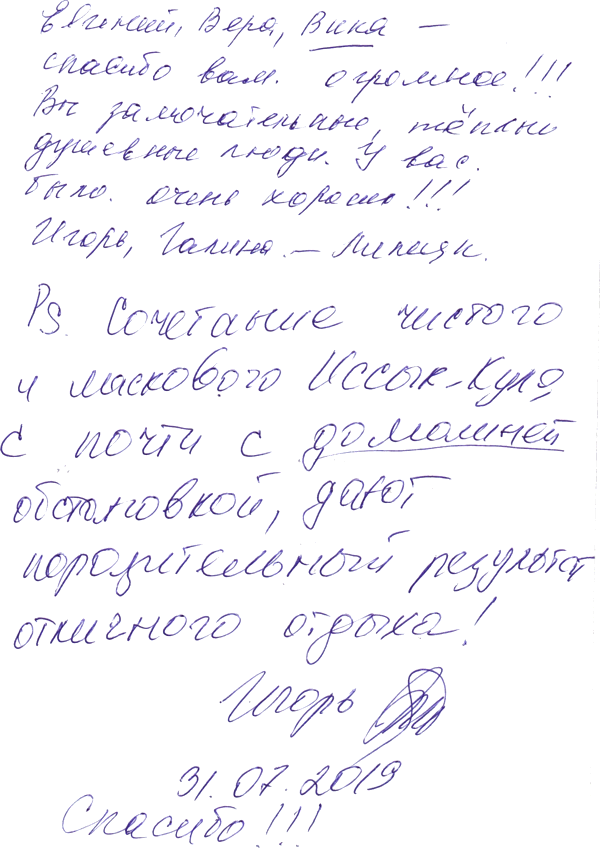 Евгений, Вера, Вика —
спасибо вам. огромное!!!
Вы замечательные, тёплые
душевные люди. У вас.
было. очень хорошо!!!
Игорь, Галина. — Липецк.
Ps. Сочетание чистого
и ласкового Иссык-Куля,
с почти с домашней
обстановкой, дают
поразительный результат
отличного отдыха!
Игорь
31.07.2019
Спасибо!!!